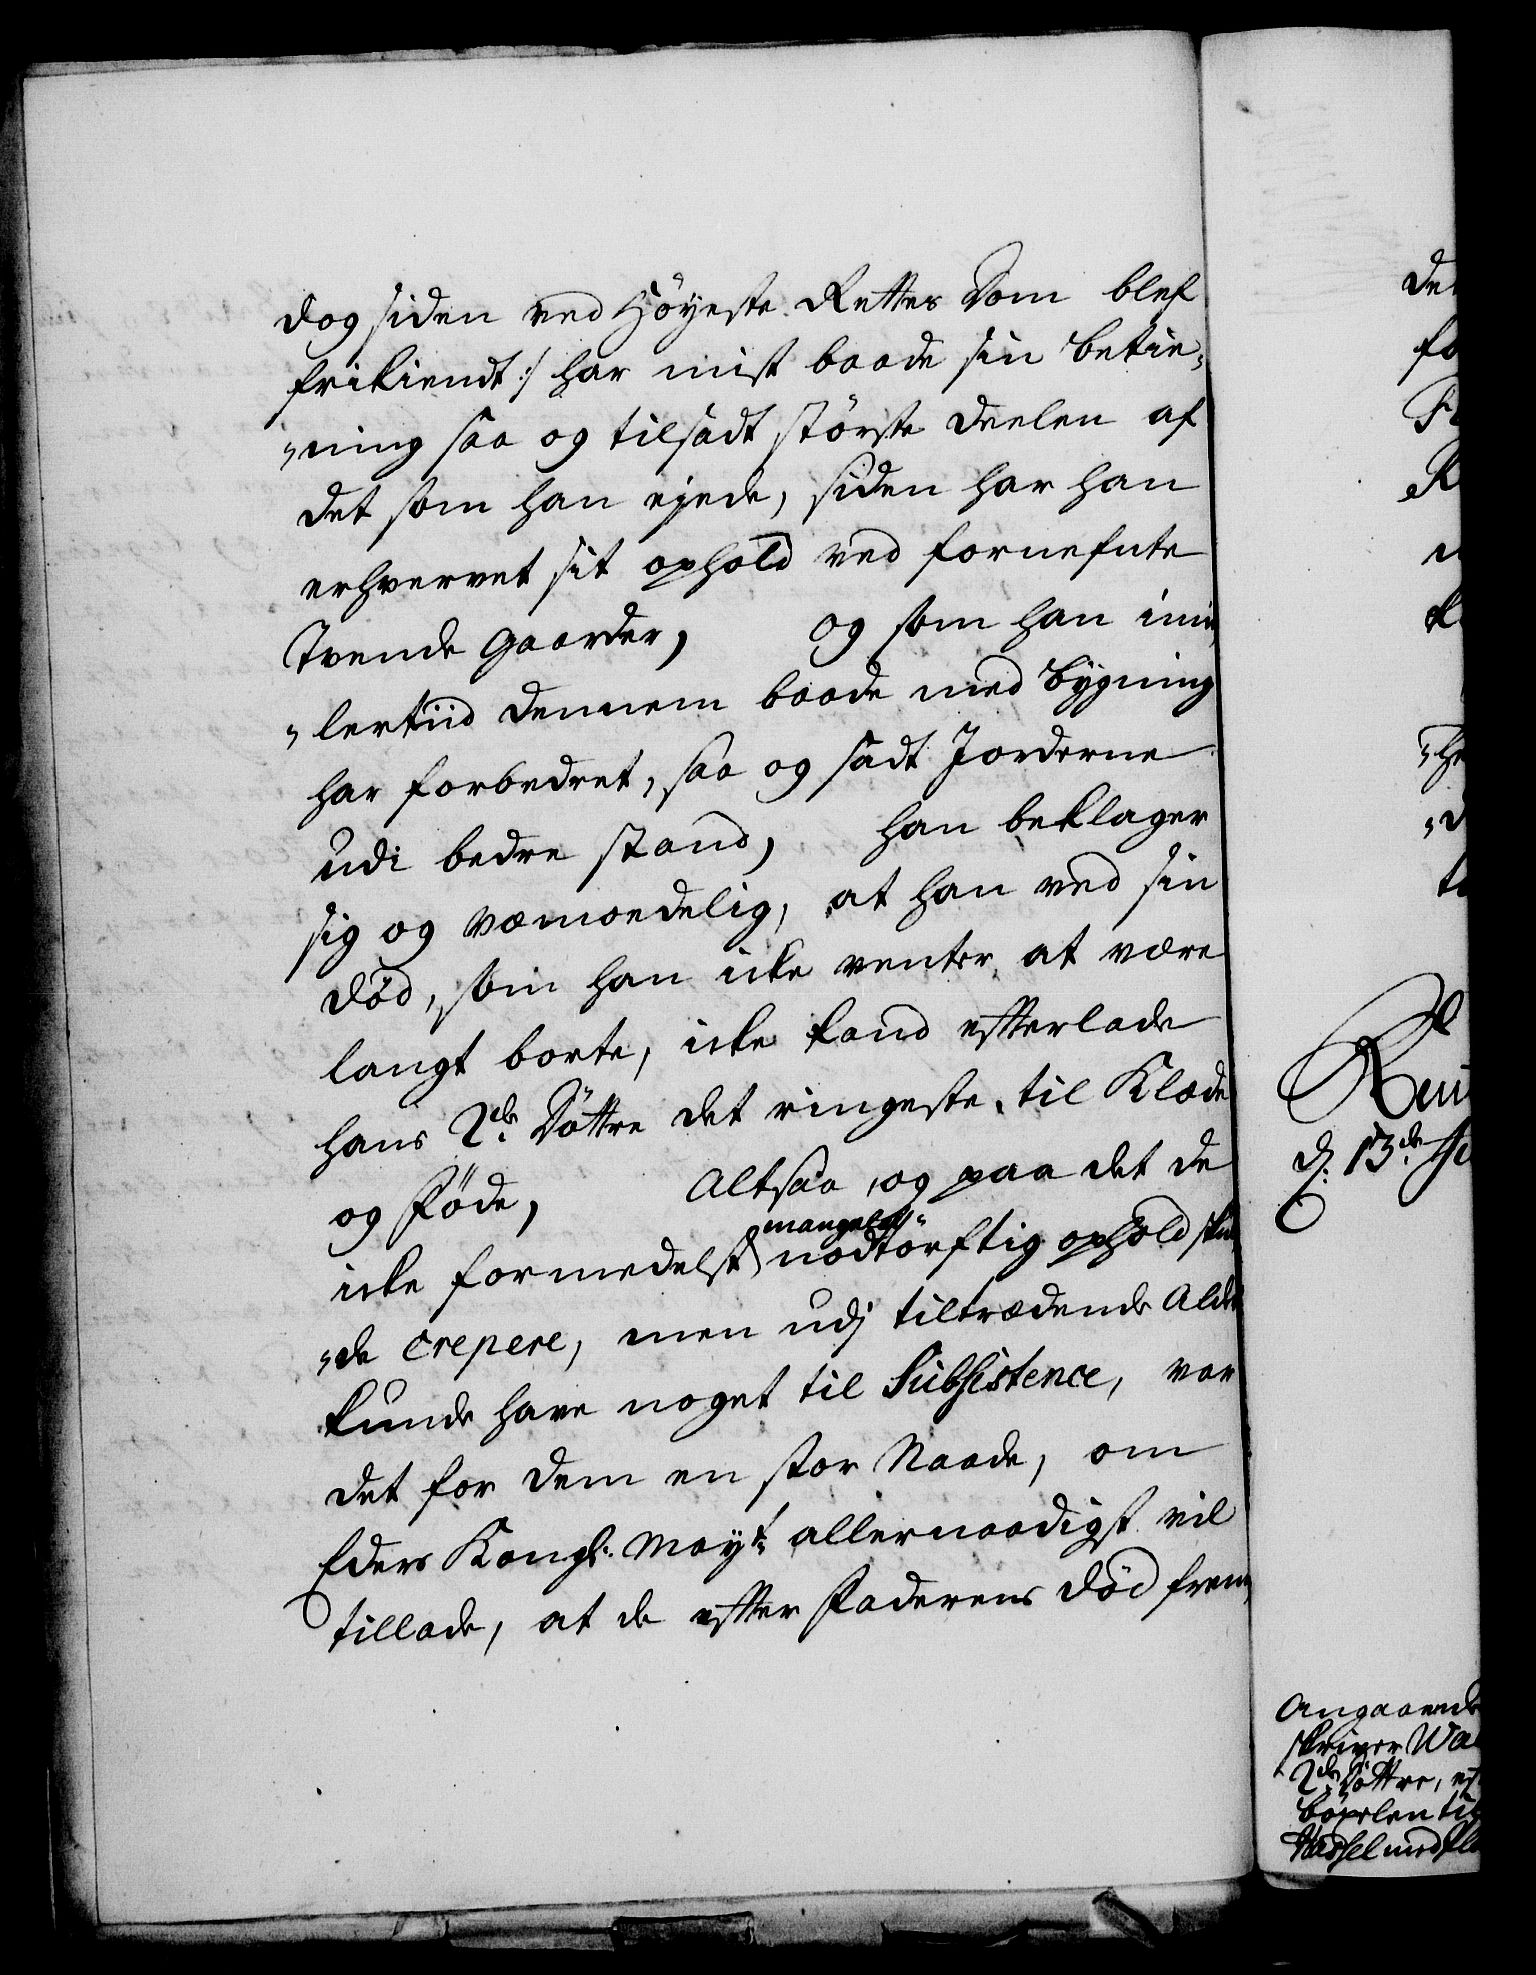 dog siden ved Höyeste Rettes Dom blef
frikiendt :/ har mist baade sin betie-
"ning saa og tilsadt störste deelen af
det som han ejede, siden har han
erhvervet sit ophold ved fornefnte
Tvende Gaarder, og som han imid
"lertiid dennem baade med bÿgning
har forbedret, saa og sadt Jorderne
udi bedre stand, han beklager
sig og væmoedelig, at han ved sin
död, som han icke venter at være
langt borte, icke kand efterlade
hans 2de Döttre det ringeste til Klæde
og Föde, Altsaa, og paa det de
icke formedelst mangel af nödtörftig ophold skul
"de crepere, men udj tiltrædende Alder
kunde have noget til Subsistence, var
det for dem en stor Naade, om
Eders Kongl: Mayt: allernaadigst vil
tillade, at de efter Faderens död frem
de
fo
R
k
"he
"d
Ren
d: 13de
Angaaende
skriver Wa
2de Döttre, ef
böxelen til
Hassel med